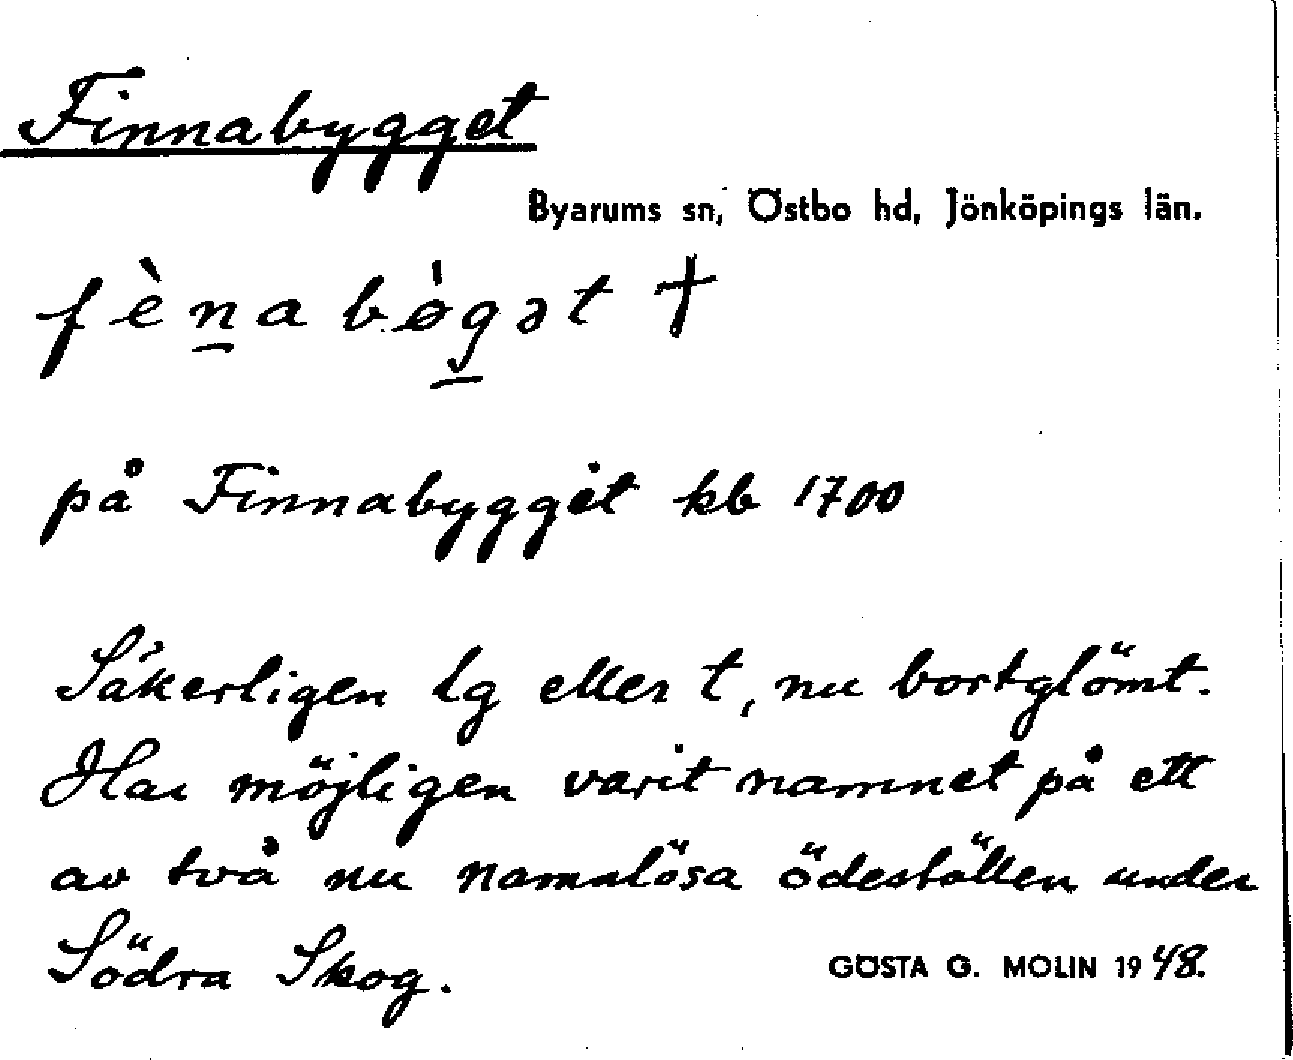 Finnabygget
Byarums sn, Östbo hd, Jönköpings län.
fèn̲abø̀g̲ət †
på Finnabyggit kb 1700
Säkerligen lg eller t, nu bortglömt.
Har möjligen varit namnet på ett
av två nu namnlösa ödeställen under
Södra Skog.
GÖSTA G. MOLIN 1948.